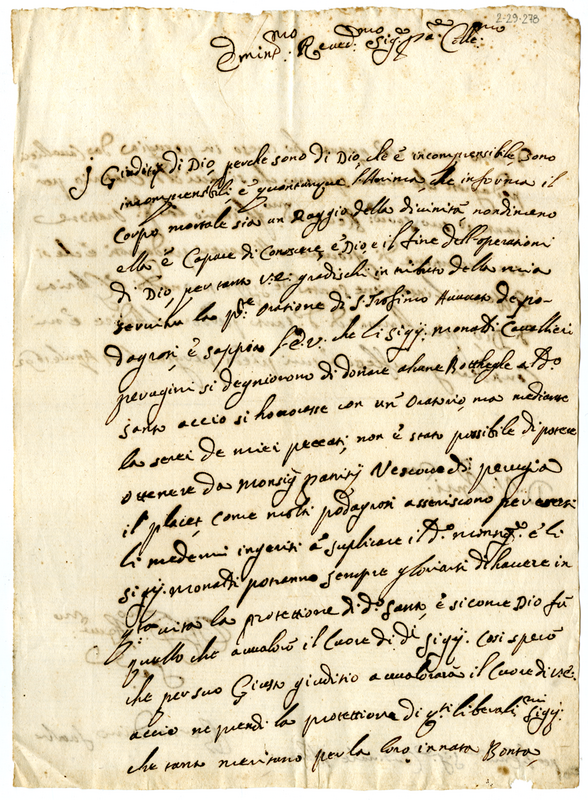 2-29-278
Emin.mo Reved.mo Sig.r
Giuditij di Dio, perche sono di Dio, che è incomprensibile, sono
incomprensibili, è quantunque l'Anima, che informa il
corpo mortale sia un Raggio della divinità nondimeno
ella è Capace di Conoscere, è Dio e il fine dell'operationi
di Dio, per tanto V.E. gradischi in tributo della mia
servitù la Oratione di S. Trofimo de po-
dagrosi, è sappia che li Sigg. monaldi Cavallieri
perugini si degniorono di donare alcune Botteghe a d.o
santo accio si honorasse con un Oratorio, ma mediante
la de miei peccati, non è stato possibile di potere
ottenere da Monsig Vescovo di perugia
il placet, come molti podagrosi asseriscono per essersi
li medemi ingeriti à suplicare il d.o è li
sigg. monaldi potranno sempre gloriarsi di havere in
vita la protettione di d.o Santo, è si come Dio fù
quello che avvalorò il Cuore di d.i Sigg. Cosi spero
che per suo Giusto giuditio avvalorarà il Cuore di V.E.
accio ne prendi la protettione di q.ti liberali.mi Sigg.
che tanto meritano per la loro innata Bontà,